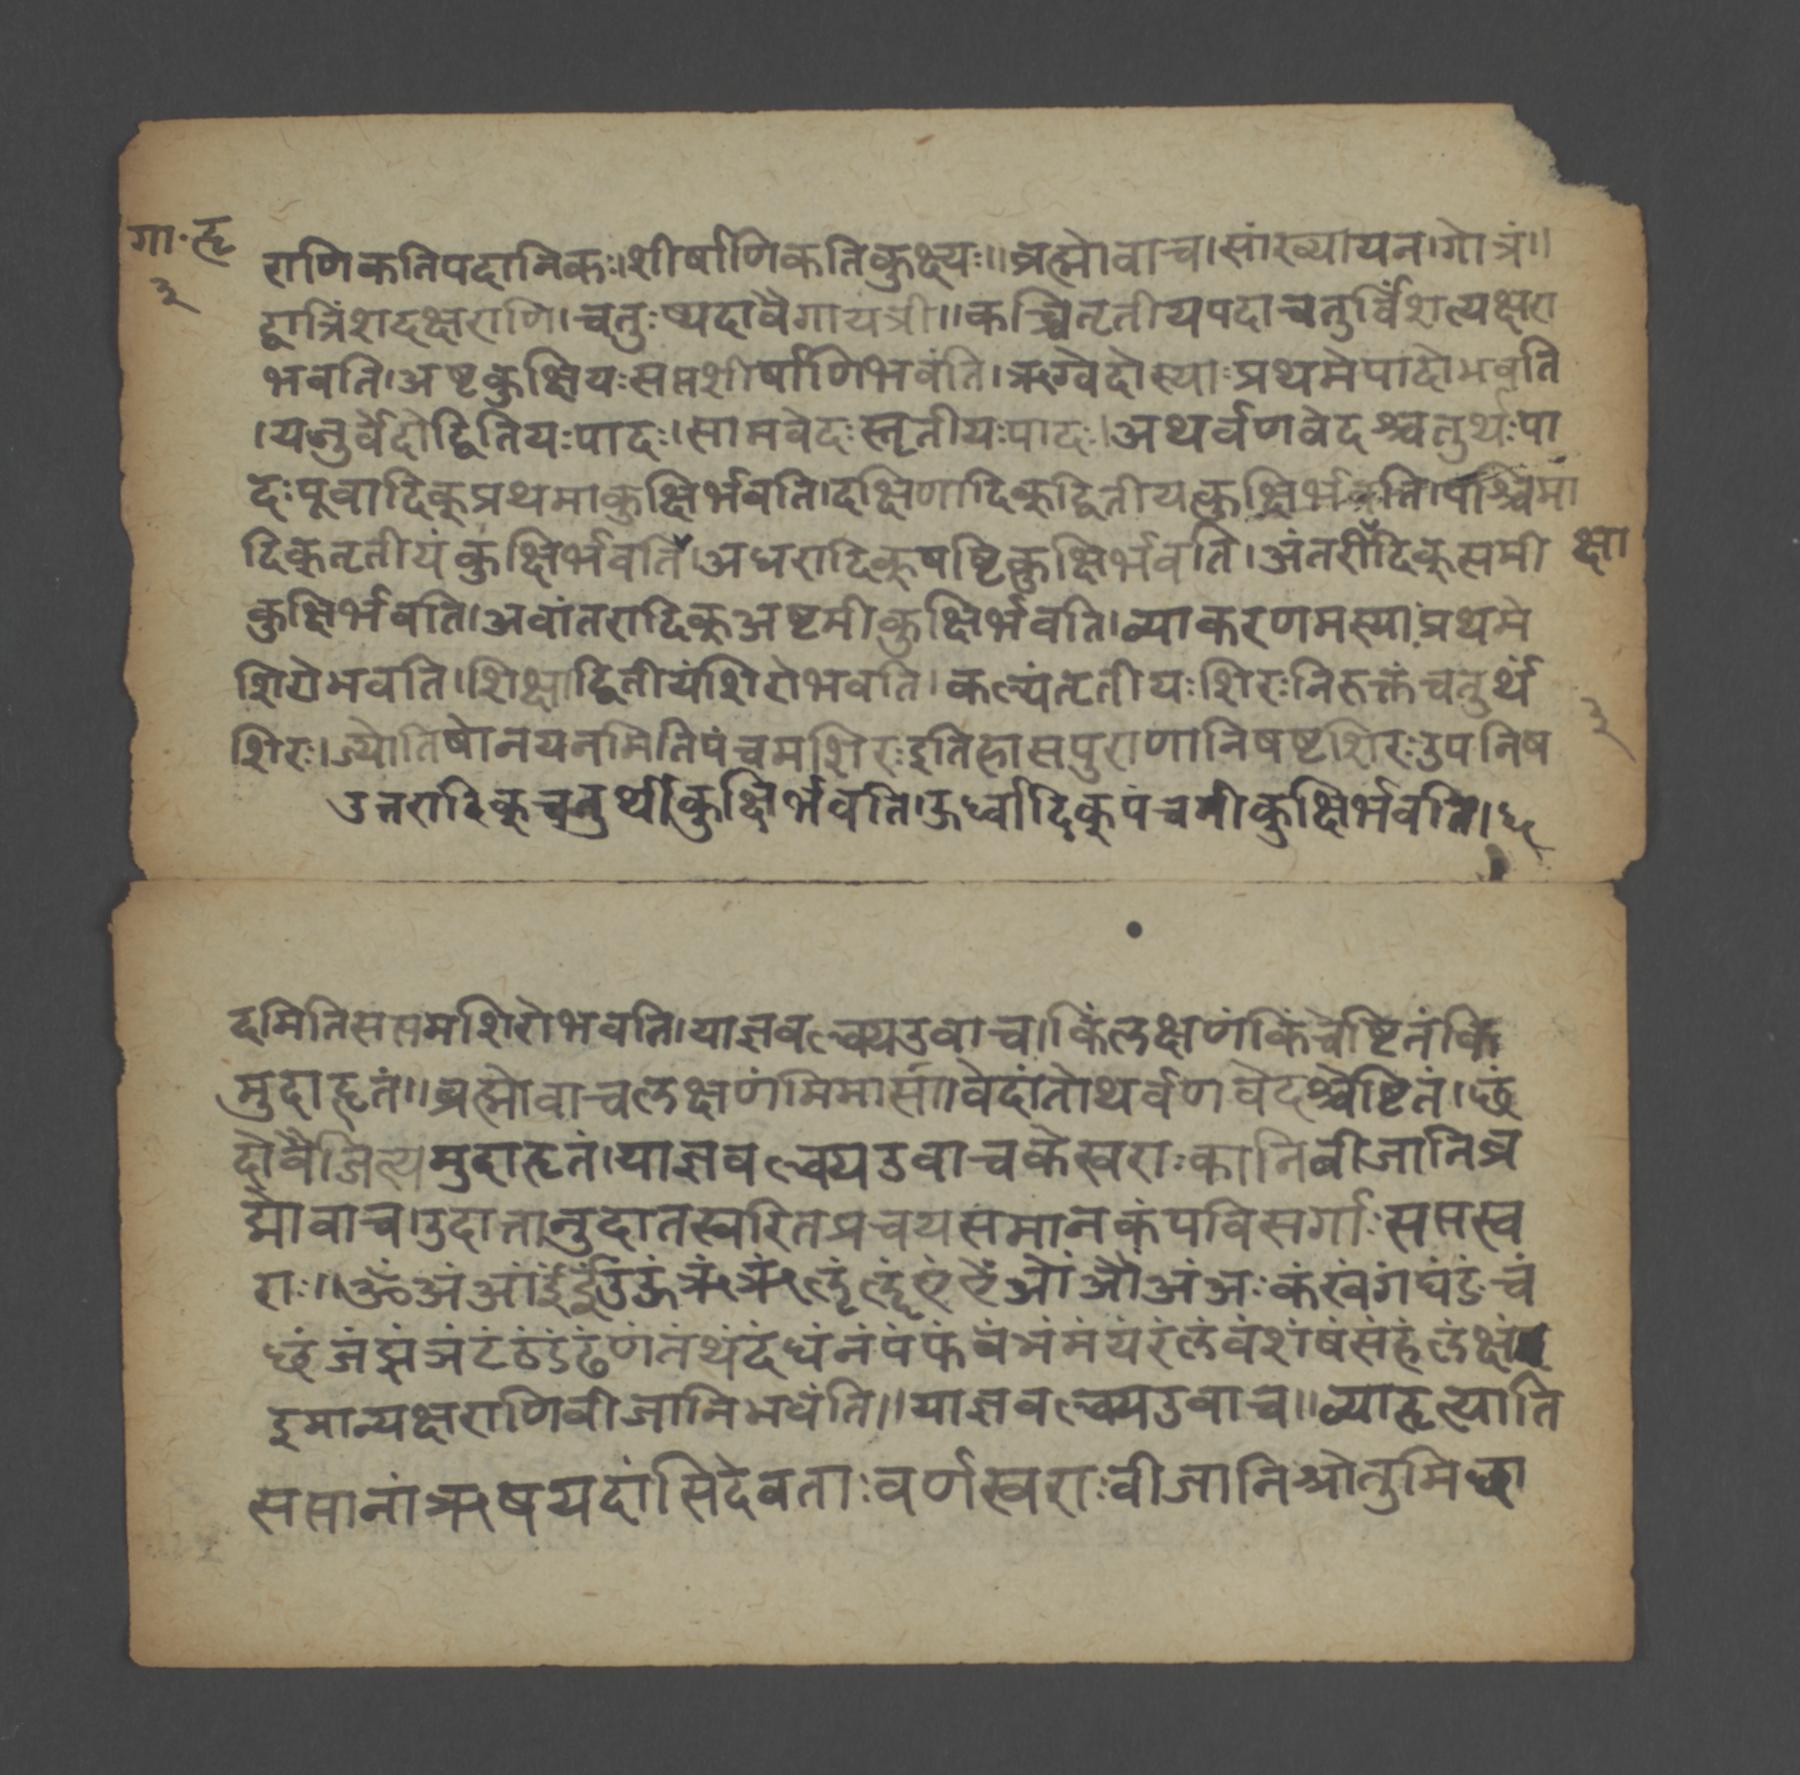 गा॰हृ
३
राणिकतिपदानिकः।शीर्षाणिकतिकुक्ष्यः॥ब्रह्मोवाच।सांख्यायन।गोत्रं॥
द्वात्रिंशदक्षराणि।चतुःष्पदावैगायत्री॥कश्चित्तृतीयपदाचतुर्विंशत्यक्षरा
भवति।अष्टकुक्षियःसप्तशीर्षाणिभवंति।ऋग्वेदोस्याःप्रथमेपादोभवति
।यजुर्वेदोद्वितियःपादः।सामवेदःस्तृतीयःपादः।अथर्वणवेदश्चतुर्थःपा
दःपूवादिकुप्रथमाकुक्षिर्भवति।दक्षिणादिकुद्वितीयकुक्षिर्भवति।पश्चिमां
दिकुतृतीयंकुक्षिर्भवति।अधरादिकुषष्टिकुक्षिर्भवति।अंतरीदिकुत्समी क्षा
कुक्षिर्भवति।अवांतरादिकुअष्टमीकुक्षिर्भवति।व्याकरणमस्याःप्रथमे
शिरोभवति।शिक्षाद्वितीयंशिरोभवति।कल्पंतृतीयःशिरःनिरुक्तंचतुर्थं
शिरः।ज्योतिषोनयनमितिपंचमशिरःइतिहासपुराणानिषष्टशिरःउपनिष
३
उत्तरादिकुचतुर्थीकुक्षिर्भवति।ऊर्ध्वादिकुपंचमीकुक्षिर्भवति।
दमितिसप्तमशिरोभवति।याज्ञवल्क्यउवाच।किंलक्षणंकिंचेष्टितंकि
मुदाहृतं॥ब्रह्मोवाचलक्षणंमिमार्सा।वेदांतोथर्वणवेदश्चेष्टितं।छं
दोवैजित्यमुदाहृतं।याज्ञवल्क्यउवाचकेस्वराःकानिबीजानिब्र
ह्मोवाच।उदात्तानुदातस्वरितप्रचयसमानकंपविसर्गाःसप्तस्व
राः॥ॐअंआंइंईंउंऊंऋंॠंऌंॡंएंऐंओंऔंअंअःकंखंगंघंङंचं
छंजंझंञंटंठंडंढंणंतंथंदंधंनंपंफंबंभंमंयंरंलंवंशंषंसंहंळंक्षं
इमान्यक्षराणिबीजानिभवंति॥याज्ञवल्क्यउवाच॥व्याहृत्याति
सप्तानांऋषयदांसिदेवताःवर्णस्वराःबीजानिश्रोतुमिछा